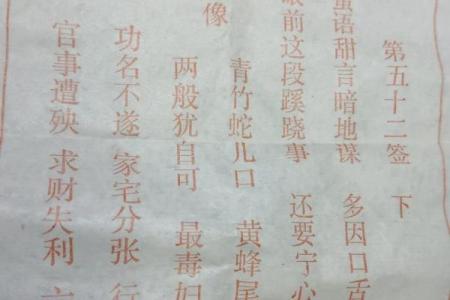 第五十二签 下
蜜语甜言暗地谋 多因口舌
眼前这段蹊跷事 还要宁心
像
青竹蛇儿口 黄蜂尾
两般犹自可 最毒妇
功名不遂 家宅分张 行
官事遭殃 求财失利 六